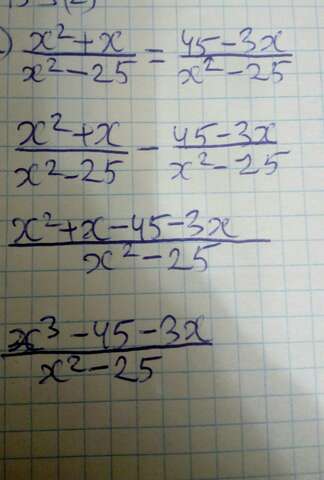 ) x²+x / x²-25 = 45-3x / x²-25
x²+x / x²-25 - 45-3x / x²-25
x²+x-45-3x / x²-25
x³-45-3x / x²-25